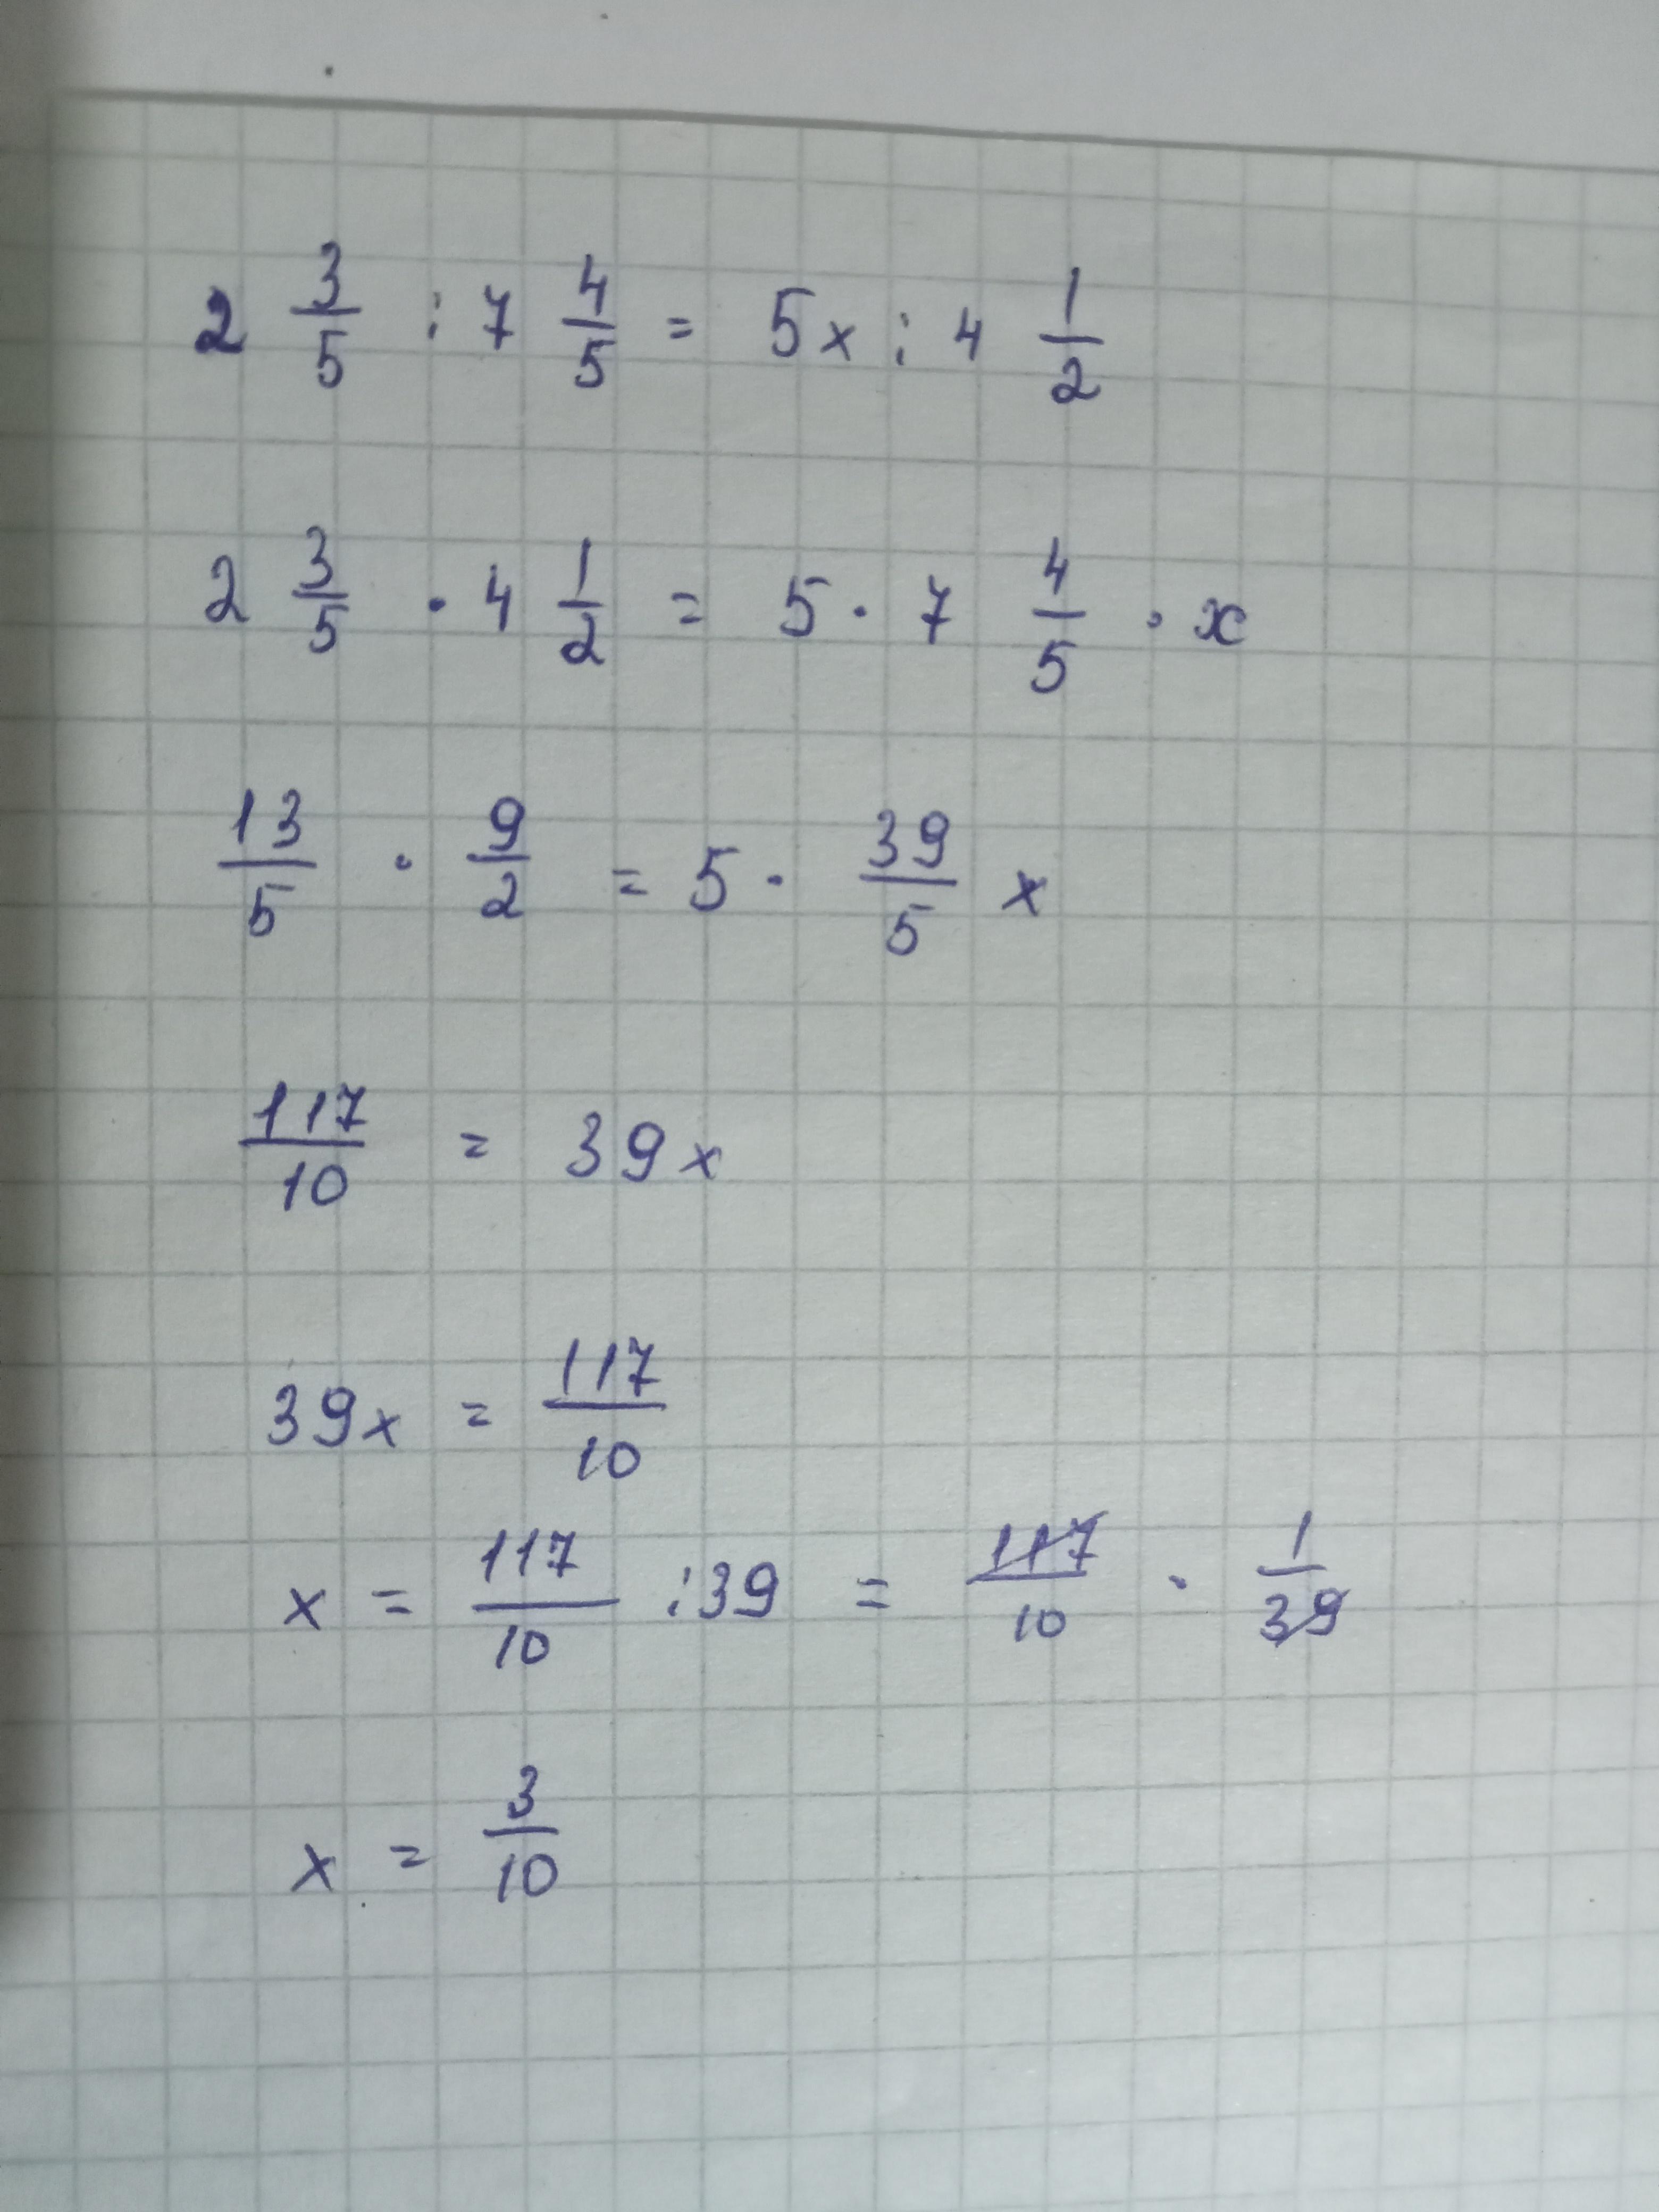 2 3/5 : 7 4/5 = 5x : 4 1/2
2 3/5 · 4 1/2 = 5 · 7 4/5 · x
13/5 · 9/2 = 5 · 39/5 x
117/10 = 39x
39x = 117/10
x = 117/10 : 39 = 117/10 · 1/39
x = 3/10